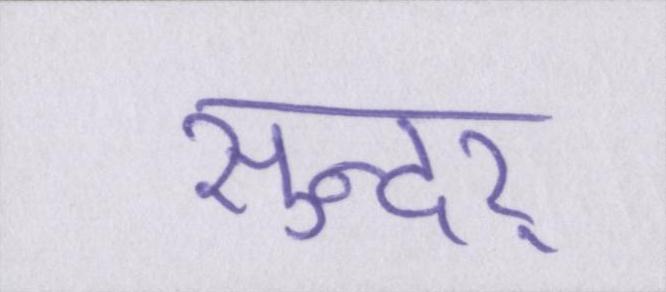 सुन्दर्